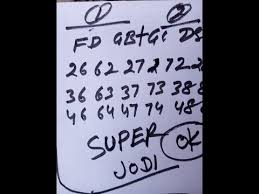 ① ②
FD GB+GZ DS
26 62 27 72
36 63 37 73 38
46 64 47 74 48
SUPER OK
JODI